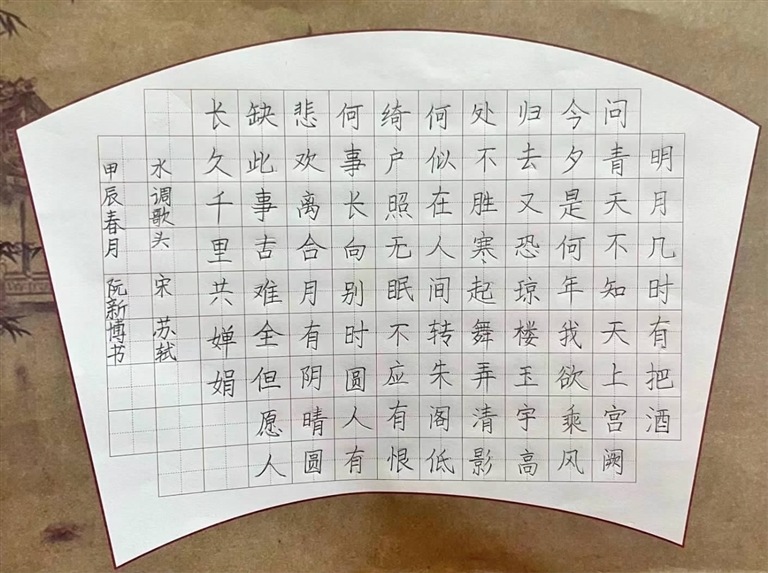 明月几时有把酒
问青天不知天上宫阙
今夕是何年我欲乘风
归去又恐琼楼玉宇高
处不胜寒起舞弄清影
何似在人间转朱阁低
绮户照无眠不应有恨
何事长向别时圆人有
悲欢离合月有阴晴圆
缺此事古难全但愿人
长久千里共婵娟
水调歌头 宋 苏轼
甲辰春月 阮新博书